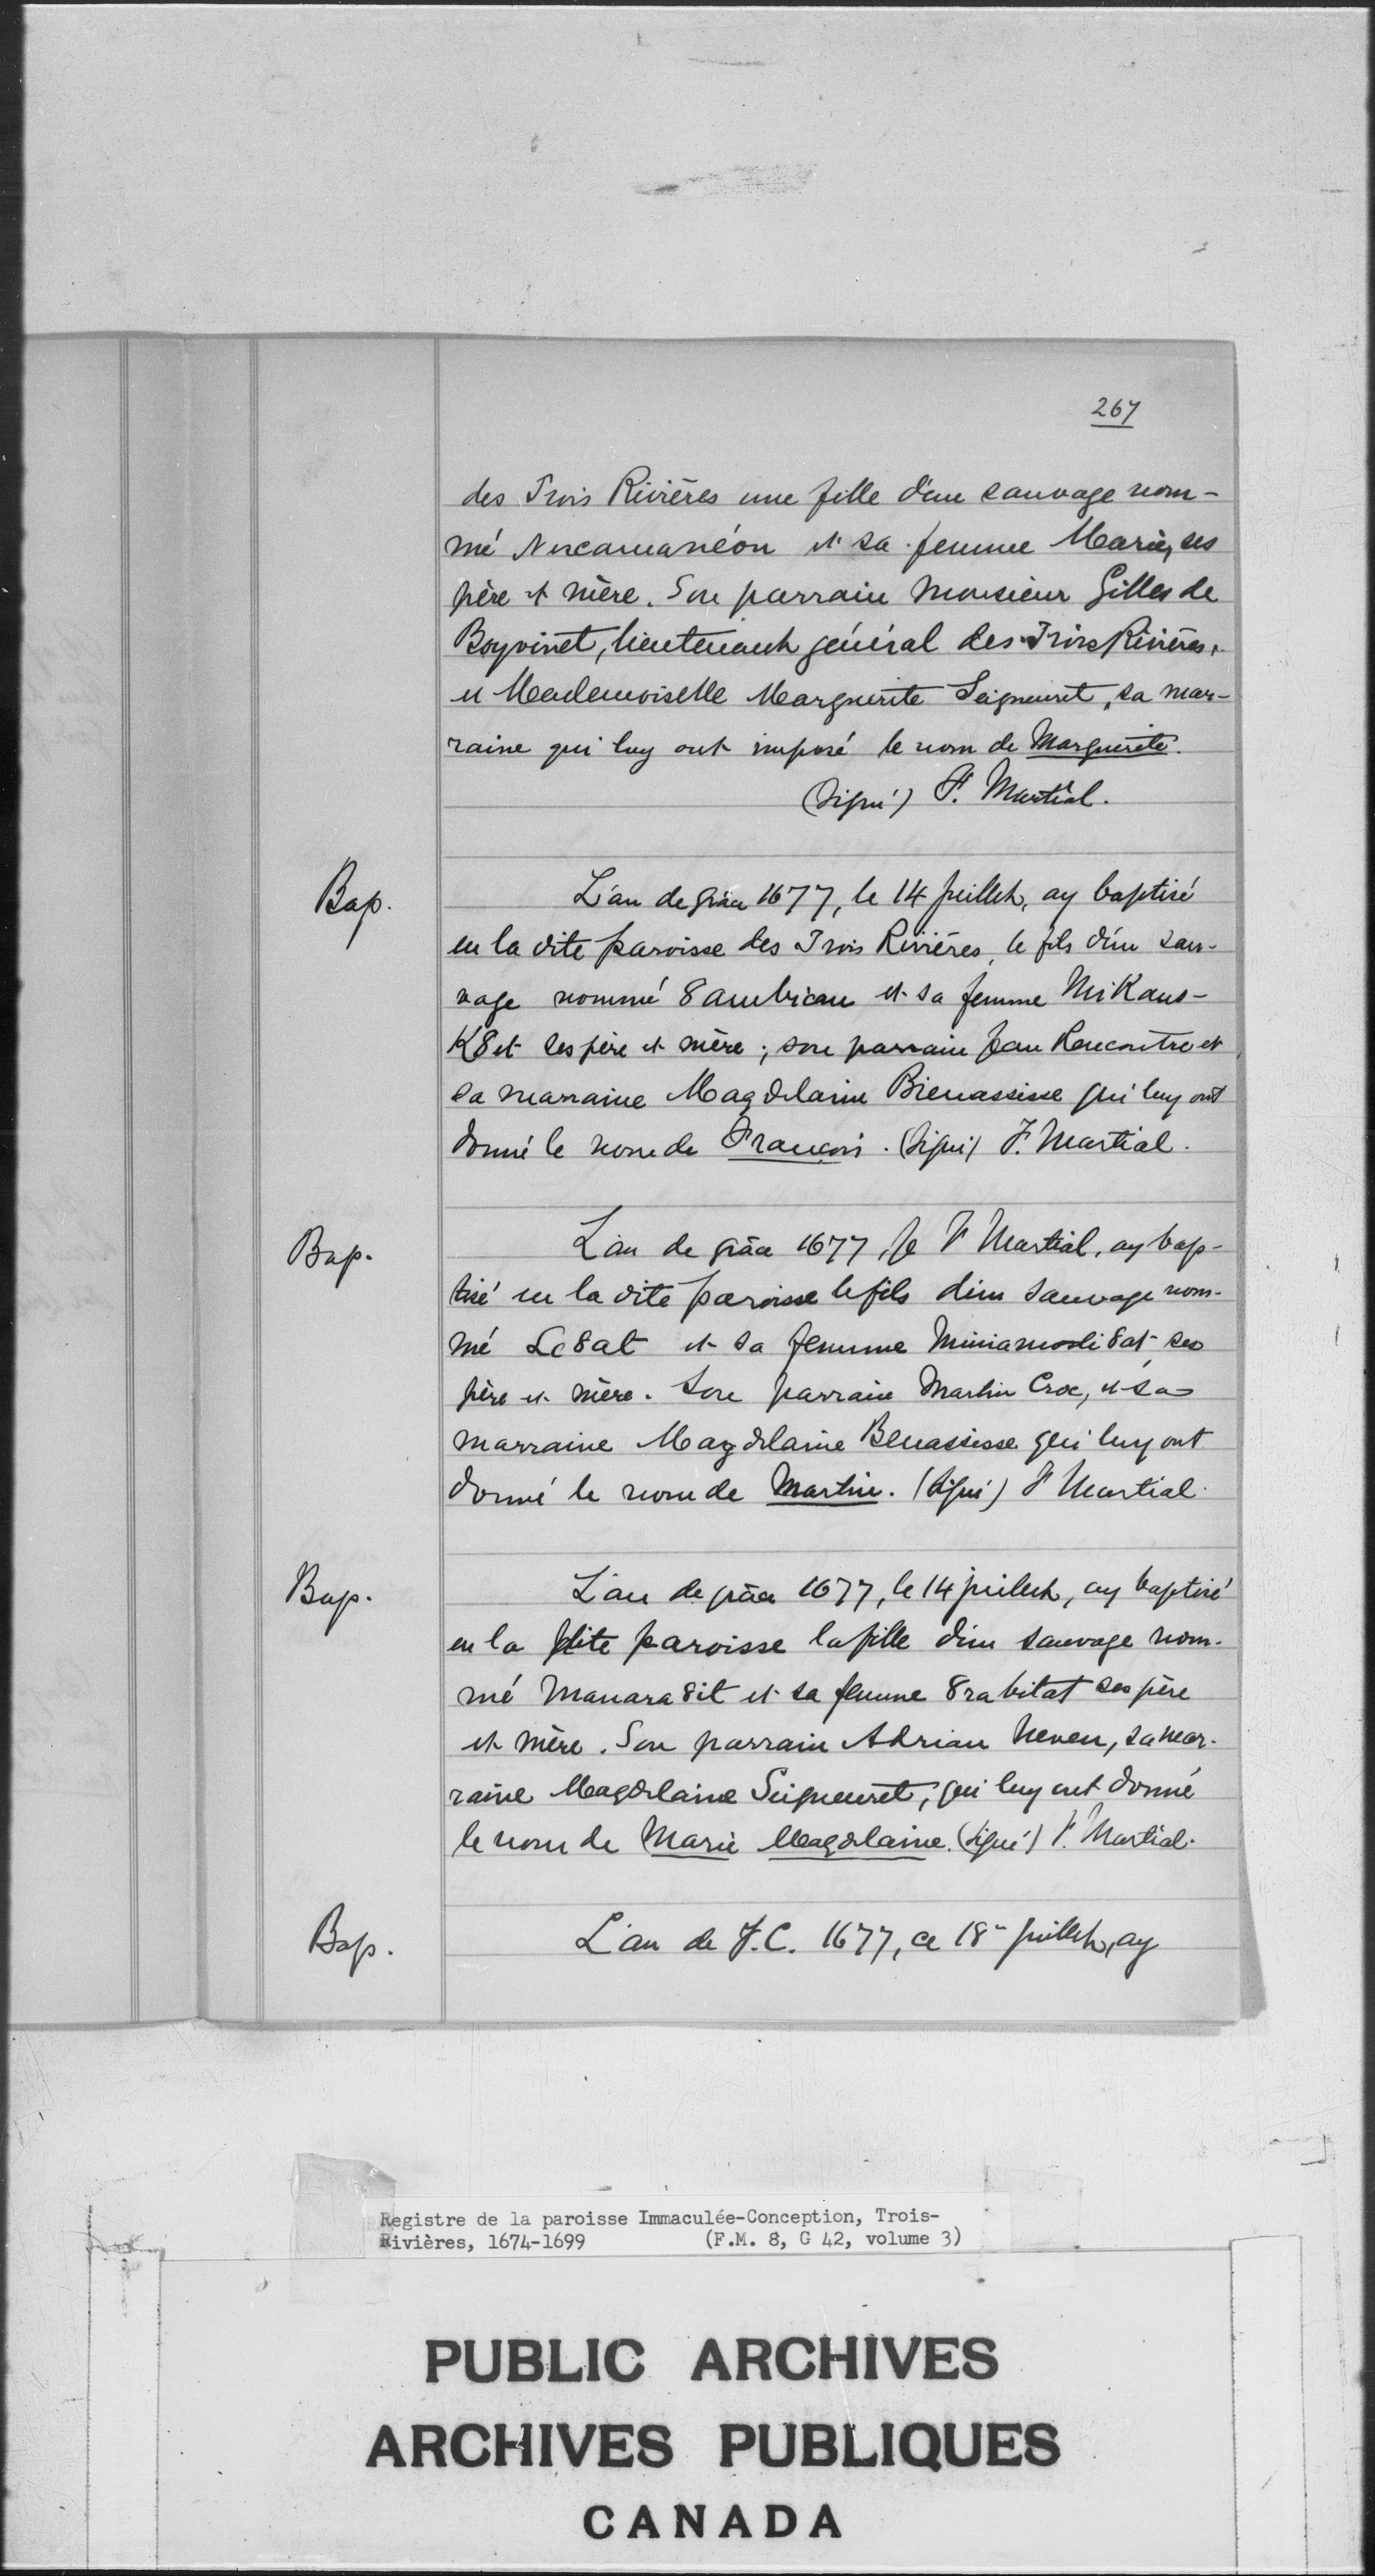 267
des Trois Rivières une fille d'un sauvage nom-
mé Nucamanéon et sa femme Marie, ses
père et mère. Son parrain Monsieur Gilles de
Boyvinet, lieutenant général des Trois Rivières,
et Mademoiselle Marguerite Seigneuret, sa mar-
raine qui luy ont imposé le nom de Marguerite.
(Signé) F. Martial.
Bap.
L'an de grâce 1677, le 14 Juillet, ay baptisé
en la dite paroisse des Trois Rivières, le fils d'un sau-
vage nommé 8ambican et sa femme MiKans-
K8et ses père et mère; son parrain Jean Rencontre et
sa marraine Magdelaine Bienassisse qui luy ont
donné le nom de François. (Signé) F. Martial.
Bap.
L'an de grâce 1677, Je F Martial, ay bap-
tisé en la dite paroisse le fils d'un sauvage nom-
mé Sc8at et sa femme ses
père et mère. Son parrain Martin Croc, et sa
marraine Magdelaine Benassisse qui luy ont
donné le nom de Martin. (Signé) F Martial.
Bap.
L'an de grâce 1677, le 14 juillet, ay baptisé
en la dite paroisse la fille d'un sauvage nom-
mé Manara8it et sa femme 8rabitat ses père
et mère. Son parrain Adrian Neveu, sa mar-
raine Magdelaine Seigneuret, qui luy ont donné
le nom de Marie Magdelaine. (Signé) F. Martial.
Bap.
L'an de J.C. 1677, ce 18- Juillet, ay
Registre de la paroisse Immaculée-Conception, Trois-
Rivières, 1674-1699 (F.M. 8, G 42, volume 3)
PUBLIC ARCHIVES
ARCHIVES PUBLIQUES
CANADA